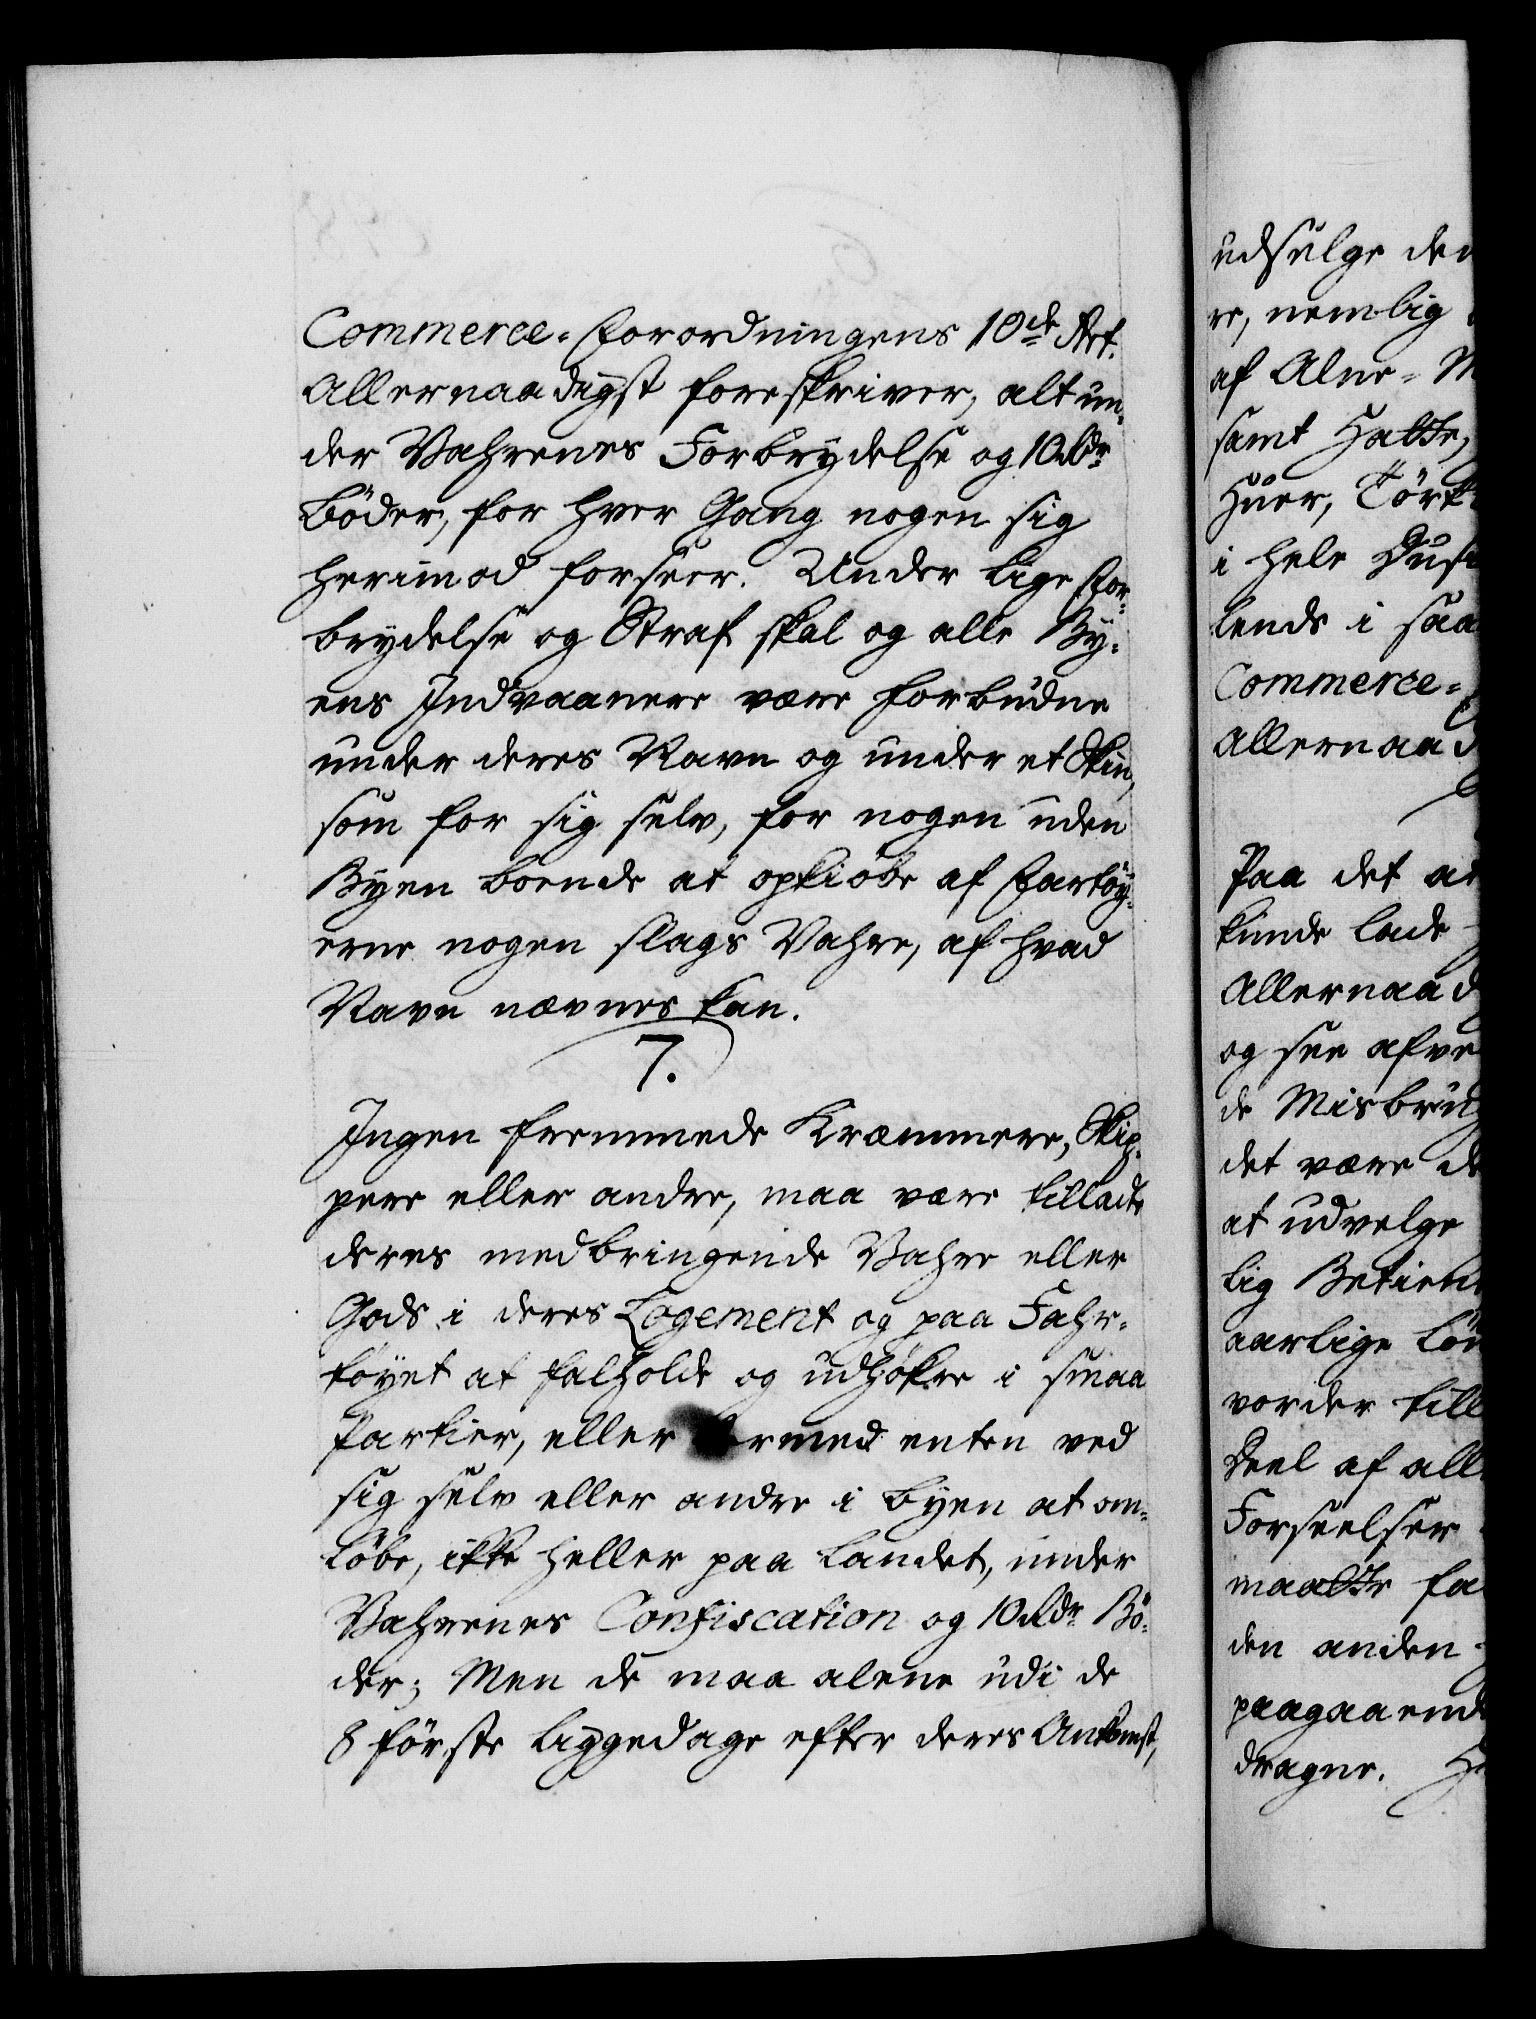 Commerce-Forordningens 10de Art.
Allernaadigst foreskriver, alt un-
der Vahrenes Forbrydelse og 10 Rdr
Bøder, for hver Gang nogen sig
herimod forseer. Under lige For-
brydelse og Straf skal og alle By-
ens Indvaanere være forbudne
under deres Navn og under et Skin,
som for sig selv, for nogen uden
Byen boende at opkiøbe af Fartøy-
erne nogen slags Vahre, af hvad
Navn nævnes kan.
7.
Ingen fremmede Kræmmere, Skip-
pere eller andre, maa være tilladte
deres medbringende Vahre eller
Gods i deres Logement og paa Fahr-
tøyet at falholde og udhøkre i smaa
Partier, eller dermed enten ved
sig selv eller andre i byen at om-
løbe, ikke heller paa landet, under
Vahrenes Confiscation og 10 Rdr Bø-
der; Men de maa alene udi de
8 første liggedage efter deres Ankomst,
udsælge den
re, nemlig
af Alne-M
samt Hatte,
Huer, Tørk
i hele Dusi
lends i saa
Commerce-
Allernaad
Paa det at
kunde lade
Allernaad
og see afve
de Misbrug
det være de
at udvelge
lig Betient
aarlige løn
vorder till
Deel af all
Forseelser
maatte fa
den anden
paagaaende
dragne. H